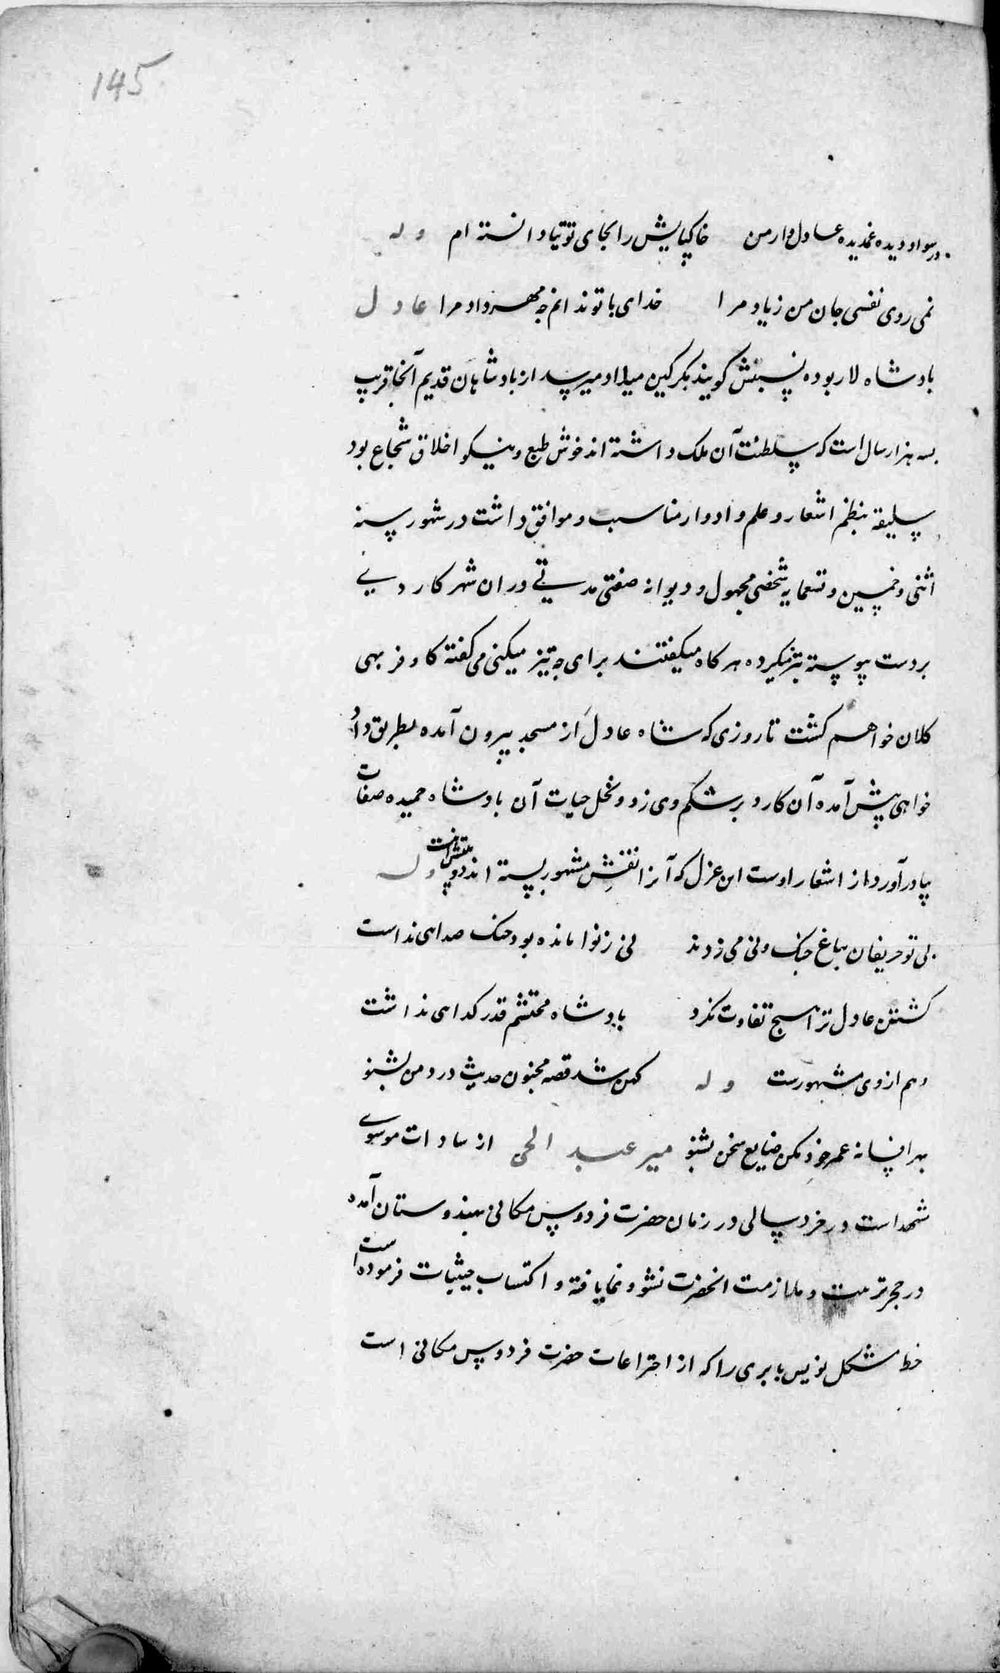 145
در سواد دیده غمدیده عادل وار من خاکپایش را بجای توتیا دانسته ام وله
نمی روی نفسی جان من ز یاد مرا خدای با تو ندانم چه مهر داد مرا عادل
بادشاه لار بوده نسبتش کویند بکرکین میلاد میرسد از بادشاهان قدیم آنجا قریب
بسه هزار سال است که سلطنت آن ملک داشته اند خوش طبع و نیکو اخلاق شجاع بود
سلیقه بنظم اشعار و علم و ادوار مناسب و موافق داشت در شهور سنه
اثنی و خمسین و تسعمایه شخصی مجهول و دیوانه صفتی مدتی دران شهر کاردی
بردست پیوسته تیز میکرده هر کاه میکفتند برای چه تیز میکنی می کفته کاو فربهی
کلان خواهم کشت تا روزی که شاه عادل از مسجد بیرون آمده بطریق داد
خواهی پیش آمده آن کارد برشکم وی زد و نخل حیات آن بادشاه حمیده صفات
بپا درآورد از اشعار اوست این غزل که آنرا نقش مشهور بسته اند وله
بی تو حریفان بباغ چنک و نی می زدند نی ز نوا مانده بود چنک صدایی نداشت
کشتن عادل ترا هیچ تفاوت نکرد بادشاه محتشم قدر کدایی نداشت
وهم ازوی مشهورست وله کهن شد قصه مجنون حدیث درد من بشنو
بهر افسانه عمر خود مکن ضایع سخن بشنو میر عبد الحی از سادات موسوی
مشهد است در خرد سالی در زمان حضرت فردوس مکانی بهندوستان آمده
در حجر تربیت و ملازمت انحضرت نشو و نما یافته و اکتساب حیثیات فرموده است
خط مشکل نویس بابری را که از اختراعات حضرت فردوس مکانی است